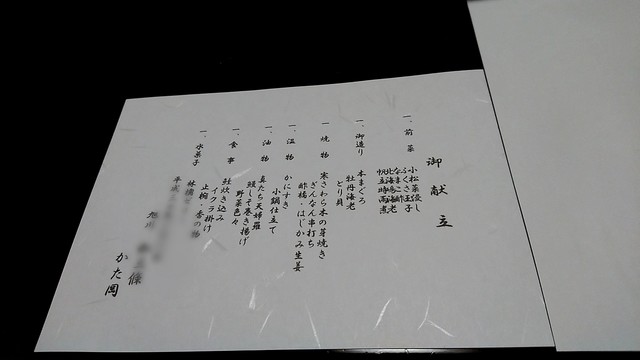 御献立
一、前菜
小松菜浸し
ふくさ玉子
なまこ酢
北海縞海老
帆立時雨煮
一、御造り
本まぐろ
牡丹海老
とり貝
一、焼物
寒さわら木の芽焼き
ぎんなん串打ち
酢橘・はじかみ生姜
一、温物
かにすき
小鍋仕立て
一、油物
真たち天婦羅
鰻しそ巻き揚げ
野菜色々
一、食事
鮭炊き込み
イクラ掛け
止椀・香の物
一、水菓子
林檎
平成
旭川
條
かた岡